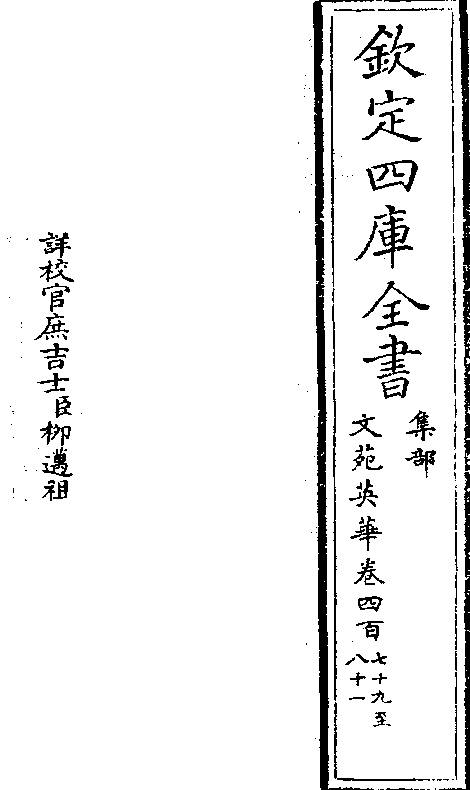 欽定四庫全書
集部
文苑英華卷四百七十九至八十一
詳校官庶吉士臣柳邁祖